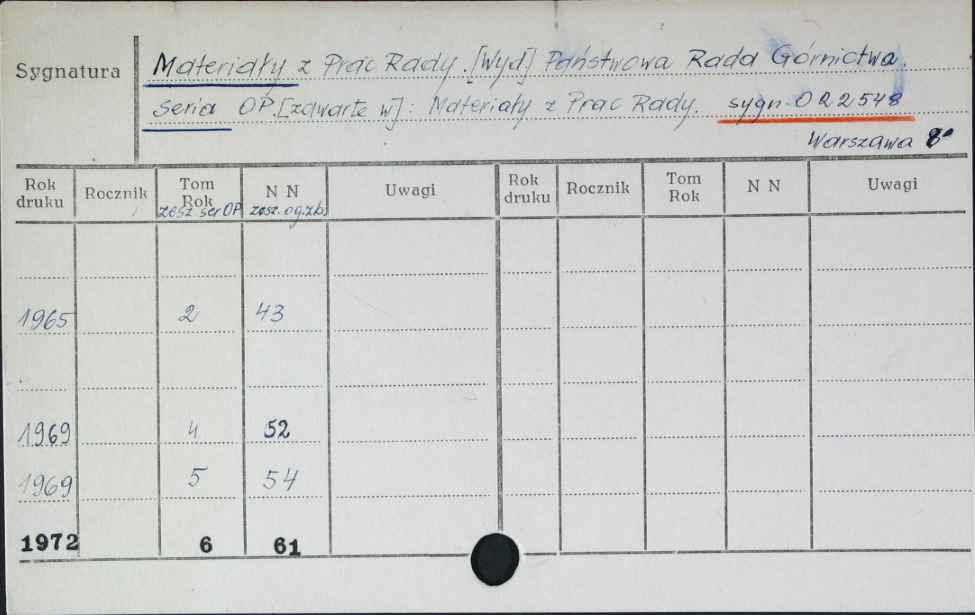 Sygnatura
Materiały z Prac Rady. [Wyd] Państwowa Rada Górnictwa.
Seria OP. [zawarte w]: Materiały z Prac Rady. sygn. O R 2548
Warszawa 8°
Rok druku Rocznik Tom Rok N N Uwagi Rok druku Rocznik Tom Rok N N Uwagi
zesz ser OP zesz. og. zb.
1965 2 43
1969 4 52
1969 5 54
1972 6 61